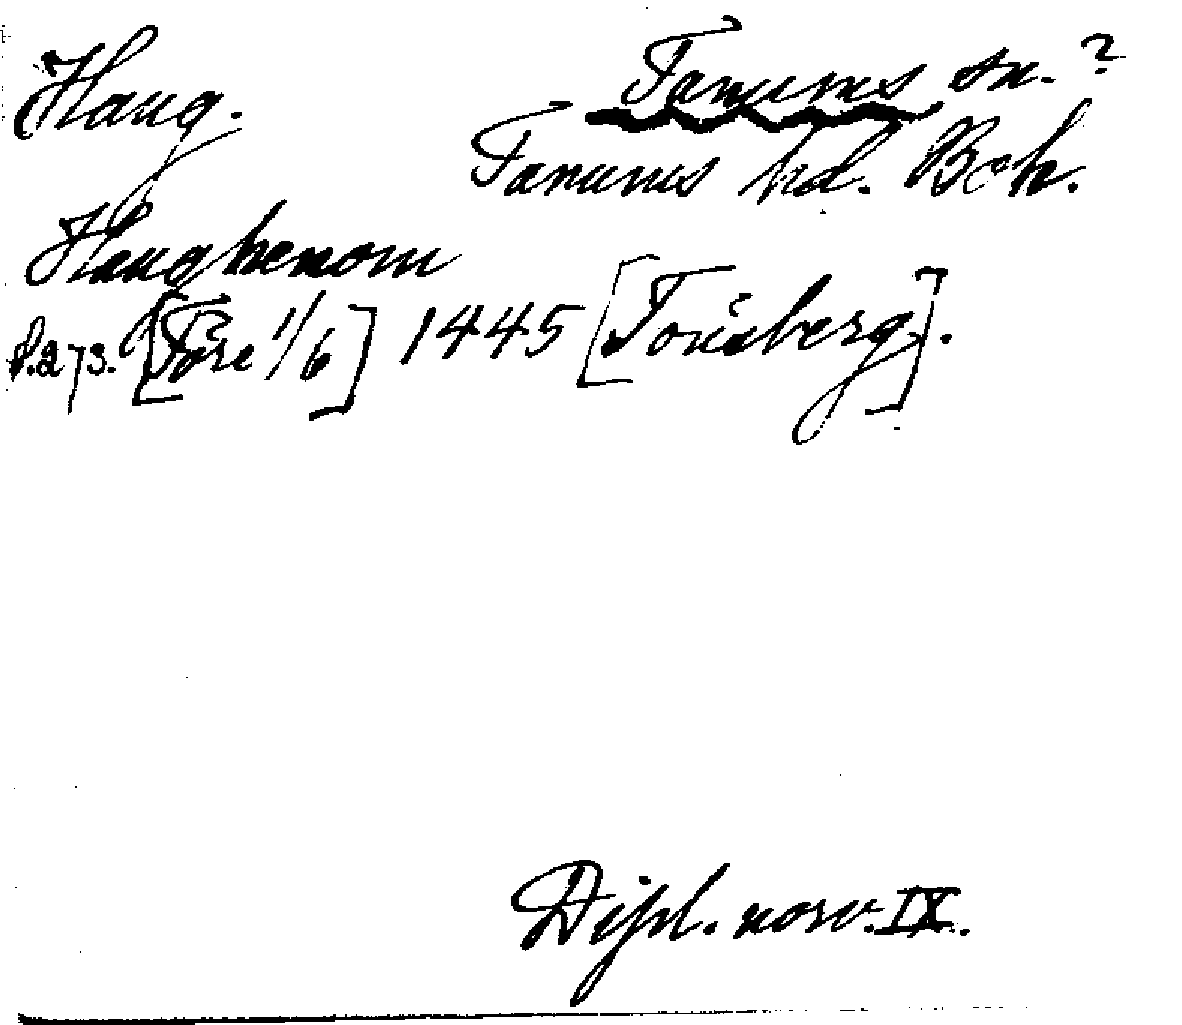 Haug. Tanums sn.?
Tanums hd. Boh.
Haughenom
s. 273. [Före 1/6] 1445 [Tönsberg].
Dipl. norv. IX.